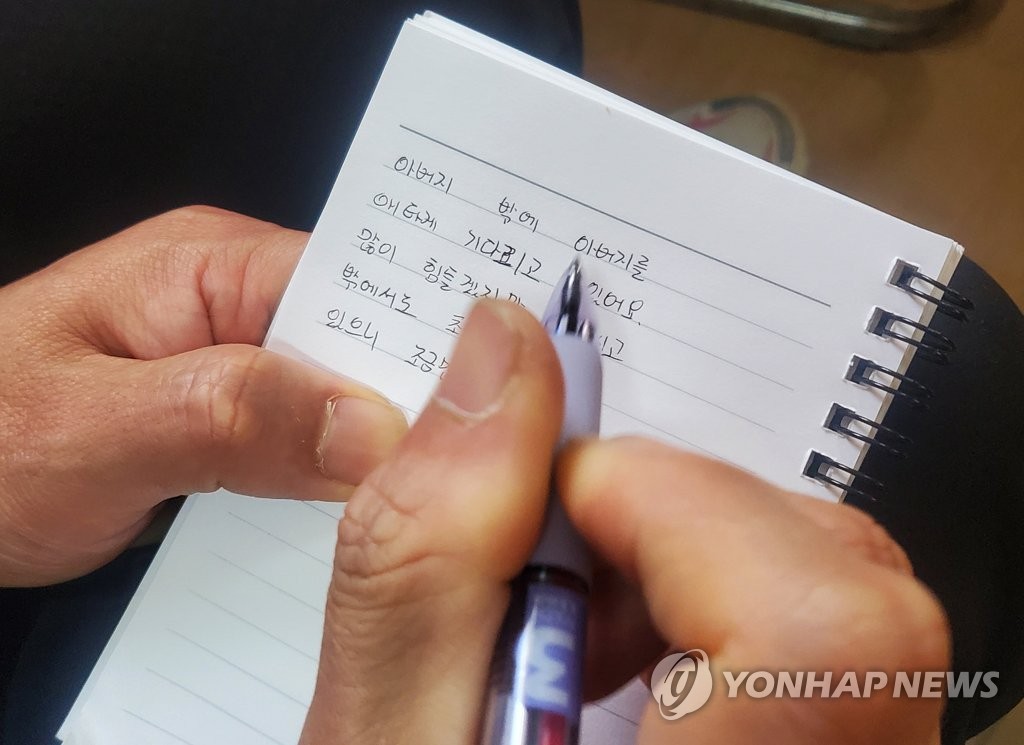 아버지 밖에 아버지를
애타게 기다리고 있어요.
많이 힘들겠지만
밖에서도 리고
있으니 조금만
UM
YONHAP NEWS